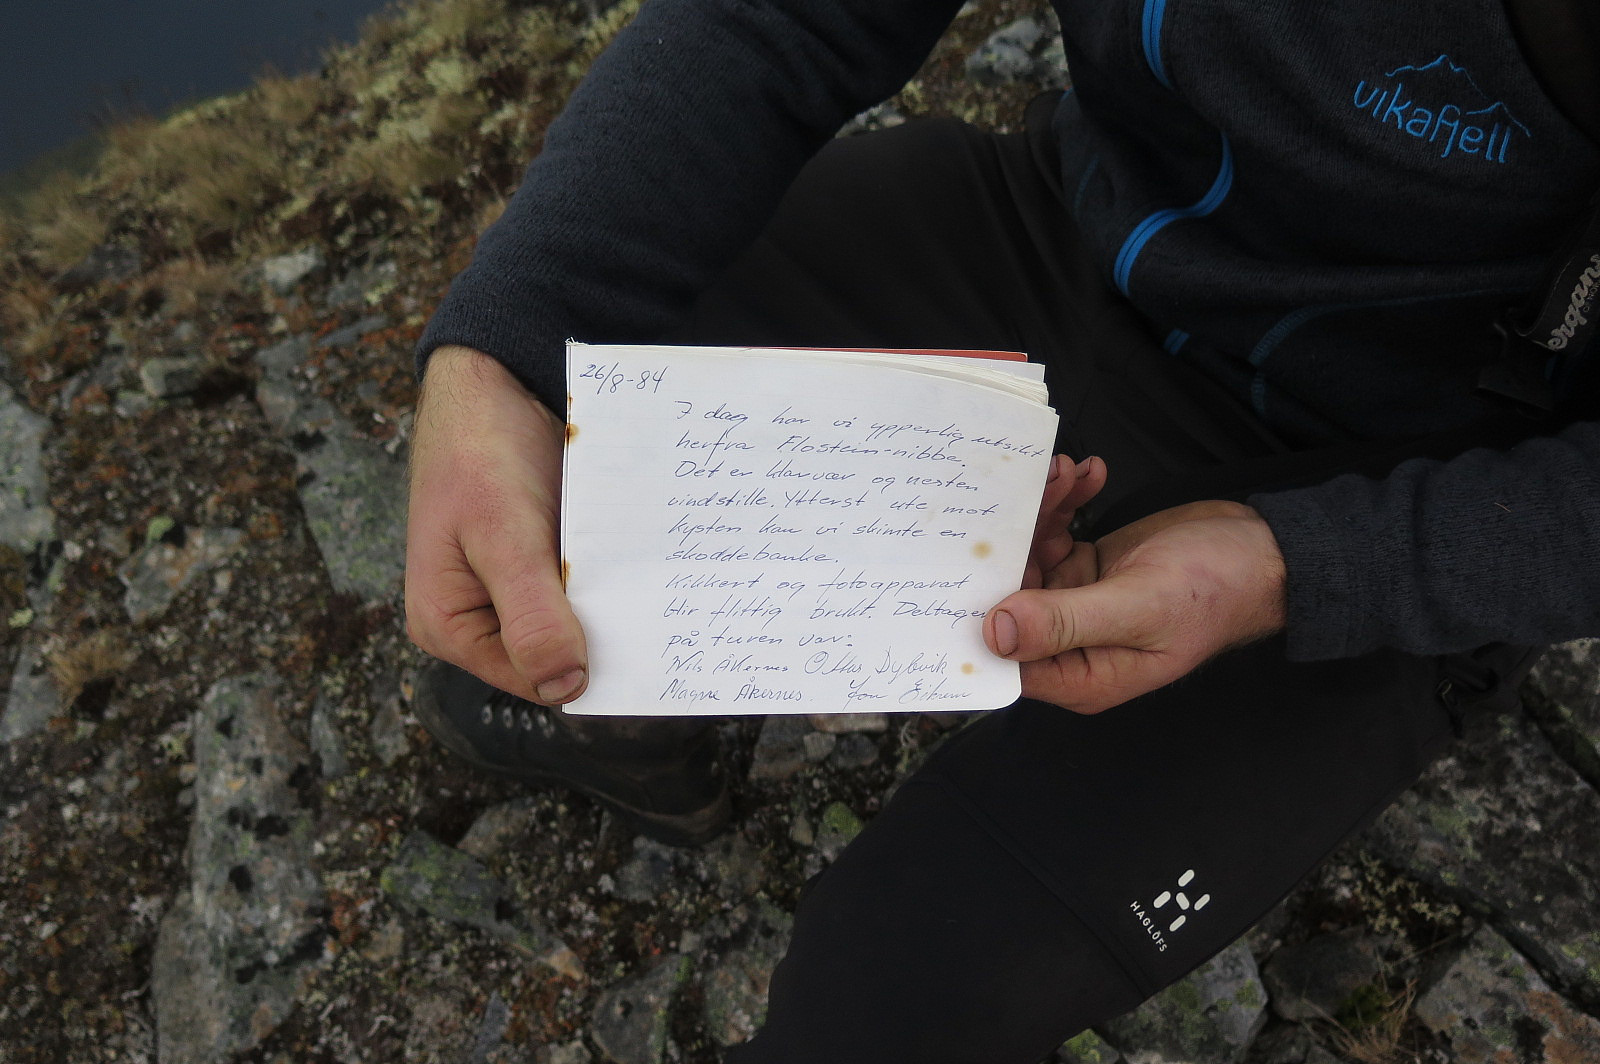 vikafjell
26/8-84
I dag har vi ypperlig utsikt
herfra Flostein-nibbe.
Det er klarvær og nesten
vindstille. Ytterst ute mot
kysten kan vi skimte en
skoddebanke.
Kikkert og fotoapparat
blir flittig brukt. Deltager
på turen var:
Nils Åkernes Dybvik
Magne Åkernes. Jon Eikrem
HAGLÖFS